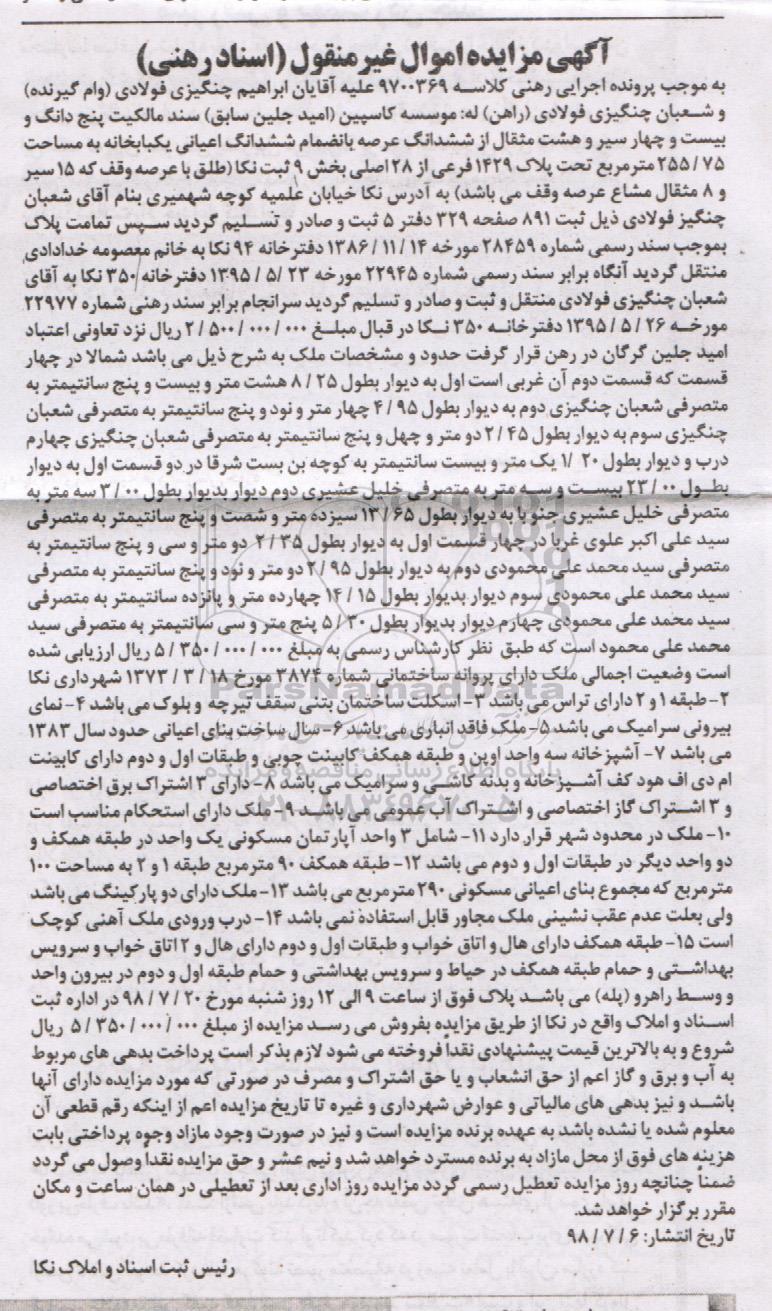 آگهی مزایده اموال غیر منقول (اسناد رهنی)
به موجب پرونده اجرایی رهنی کلاسه ۹۷۰۰۳۶۹ علیه آقایان ابراهیم چنگیزی فولادی (وام گیرنده)
و شعبان چنگیزی فولادی (راهن) له: موسسه کاسپین (امید جلین سابق) سند مالکیت پنج دانگ و
بیست و چهار سیر و هشت مثقال از ششدانگ عرصه بانضمام ششدانگ اعیانی یکبابخانه به مساحت
۲۵۵/۷۵ مترمربع تحت پلاک ۱۴۲۹ فرعی از ۲۸ اصلی بخش ۹ ثبت نکا (طلق با عرصه وقف که ۱۵ سیر
و ۸ مثقال مشاع عرصه وقف می باشد) به آدرس نکا خیابان علمیه کوچه شهمیری بنام آقای شعبان
چنگیز فولادی ذیل ثبت ۸۹۱ صفحه ۳۲۹ دفتر ۵ ثبت و صادر و تسلیم گردید سپس تمامت پلاک
بموجب سند رسمی شماره ۲۸۴۵۹ مورخه ۱۴/۱۱/۱۳۸۶ دفترخانه ۹۴ نکا به خانم معصومه خدادادی
منتقل گردید آنگاه برابر سند رسمی شماره ۲۲۹۴۵ مورخه ۲۳/۵/۱۳۹۵ دفترخانه ۳۵۰ نکا به آقای
شعبان چنگیزی فولادی منتقل و ثبت و صادر و تسلیم گردید سرانجام برابر سند رهنی شماره ۲۲۹۷۷
مورخه ۲۶/۵/۱۳۹۵ دفترخانه ۳۵۰ نکا در قبال مبلغ ۲/۵۰۰/۰۰۰/۰۰۰ ریال نزد تعاونی اعتباد
امید جلین گرگان در رهن قرار گرفت حدود و مشخصات ملک به شرح ذیل می باشد شمالا در چهار
قسمت که قسمت دوم آن غربی است اول به دیوار بطول ۸/۲۵ هشت متر و بیست و پنج سانتیمتر به
متصرفی شعبان چنگیزی دوم به دیوار بطول ۴/۹۵ چهار متر و نود و پنج سانتیمتر به متصرفی شعبان
چنگیزی سوم به دیوار بطول ۲/۴۵ دو متر و چهل و پنج سانتیمتر به متصرفی شعبان چنگیزی چهارم
درب و دیوار بطول ۱/۲۰ یک متر و بیست سانتیمتر به کوچه بن بست شرقا در دو قسمت اول به دیوار
بطول ۲۳/۰۰ بیست و سه متر به متصرفی خلیل عشیری دوم دیوار بدیوار بطول ۳/۰۰ سه متر به
متصرفی خلیل عشیری جنوبا به دیوار بطول ۱۳/۶۵ سیزده متر و شصت و پنج سانتیمتر به متصرفی
سید علی اکبر علوی غربا در چهار قسمت اول به دیوار بطول ۲/۳۵ دو متر و سی و پنج سانتیمتر به
متصرفی سید محمد علی محمودی دوم به دیوار بطول ۲/۹۵ دو متر و نود و پنج سانتیمتر به متصرفی
سید محمد علی محمودی سوم دیوار بدیوار بطول ۱۴/۱۵ چهارده متر و پانزده سانتیمتر به متصرفی
سید محمد علی محمودی چهارم دیوار بدیوار بطول ۵/۳۰ پنج متر و سی سانتیمتر به متصرفی سید
محمد علی محمود است که طبق نظر کارشناس رسمی به مبلغ ۵/۳۵۰/۰۰۰/۰۰۰ ریال ارزیابی شده
است وضعیت اجمالی ملک دارای پروانه ساختمانی شماره ۳۸۷۴ مورخ ۱۸/۳/۱۳۷۳ شهرداری نکا
۲- طبقه ۱ و ۲ دارای تراس می باشد ۳- اسکلت ساختمان بتنی سقف تیرچه و بلوک می باشد ۴- نمای
بیرونی سرامیک می باشد ۵- ملک فاقد انباری می باشد ۶- سال ساخت بنای اعیانی حدود سال ۱۳۸۳
می باشد ۷- آشپزخانه سه واحد اوپن و طبقه همکف کابینت چوبی و طبقات اول و دوم دارای کابینت
ام دی اف هود کف آشپزخانه و بدنه کاشی و سرامیک می باشد ۸- دارای ۳ اشتراک برق اختصاصی
و ۳ اشتراک گاز اختصاصی و اشتراک آب عمومی می باشد ۹- ملک دارای استحکام مناسب است
۱۰- ملک در محدود شهر قرار دارد ۱۱- شامل ۳ واحد آپارتمان مسکونی یک واحد در طبقه همکف و
دو واحد دیگر در طبقات اول و دوم می باشد ۱۲- طبقه همکف ۹۰ مترمربع طبقه ۱ و ۲ به مساحت ۱۰۰
مترمربع که مجموع بنای اعیانی مسکونی ۲۹۰ مترمربع می باشد ۱۳- ملک دارای دو پارکینگ می باشد
ولی بعلت عدم عقب نشینی ملک مجاور قابل استفاده نمی باشد ۱۴- درب ورودی ملک آهنی کوچک
است ۱۵- طبقه همکف دارای هال و اتاق خواب و طبقات اول و دوم دارای هال و ۲ اتاق خواب و سرویس
بهداشتی و حمام طبقه همکف در حیاط و سرویس بهداشتی و حمام طبقه اول و دوم در بیرون واحد
و وسط راهرو (پله) می باشد پلاک فوق از ساعت ۹ الی ۱۲ روز شنبه مورخ ۲۰/۷/۹۸ در اداره ثبت
اسناد و املاک واقع در نکا از طریق مزایده بفروش می رسد مزایده از مبلغ ۵/۳۵۰/۰۰۰/۰۰۰ ریال
شروع و به بالاترین قیمت پیشنهادی نقداً فروخته می شود لازم بذکر است پرداخت بدهی های مربوط
به آب و برق و گاز اعم از حق انشعاب و یا حق اشتراک و مصرف در صورتی که مورد مزایده دارای آنها
باشد و نیز بدهی های مالیاتی و عوارض شهرداری و غیره تا تاریخ مزایده اعم از اینکه رقم قطعی آن
معلوم شده یا نشده باشد به عهده برنده مزایده است و نیز در صورت وجود مازاد وجوه پرداختی بابت
هزینه های فوق از محل مازاد به برنده مسترد خواهد شد و نیم عشر و حق مزایده نقداً وصول می گردد
ضمناً چنانچه روز مزایده تعطیل رسمی گردد مزایده روز اداری بعد از تعطیلی در همان ساعت و مکان
مقرر برگزار خواهد شد.
تاریخ انتشار: ۹۸/۷/۶
رئیس ثبت اسناد و املاک نکا
ParsNamadData
پایگاه اطلاع رسانی مناقصه و مزایده